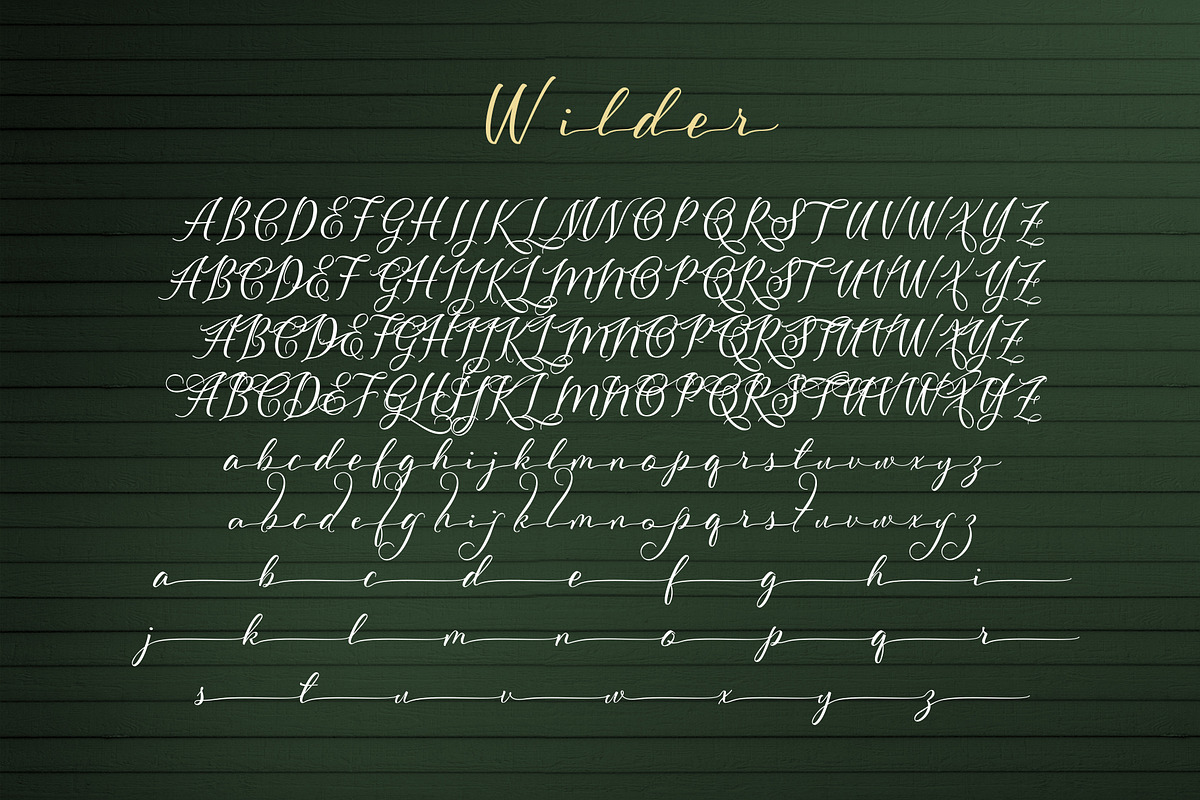 Wilder
ABCDEFGHIJKLMNOPQRSTUVWXYZ
ABCDEFGHIJKLMNOPQRSTUVWXYZ
ABCDEFGHIJKLMNOPQRSTUVWXYZ
ABCDEFGHIJKLMNOPQRSTUVWXYZ
abcdefghijklmnopqrstuvwxyz
abcdefghijklmnopqrstuvwxyz
a b c d e f g h i
j k l m n o p q r
s t u v w x y z